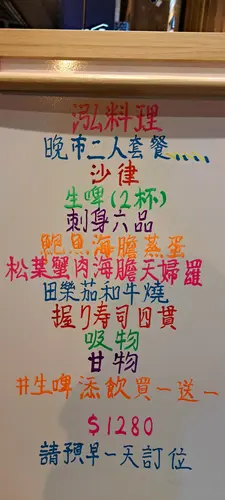 泓料理
晚市二人套餐....
沙律
生啤(2杯)
刺身六品
鮑魚海膽蒸蛋
松葉蟹肉海膽天婦羅
田樂茄和牛燒
握り寿司四貫
吸物
甘物
#生啤添飲買一送一
$1280
請預早一天訂位